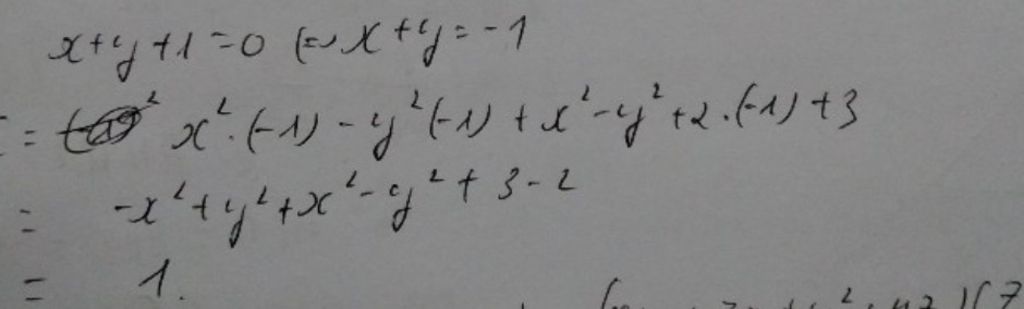 x+y+1=0 (=) x+y=-1
= x².(-1) - y²(-1) + x² - y² + 2.(-1) + 3
= -x² + y² + x² - y² + 3 - 2
= 1.